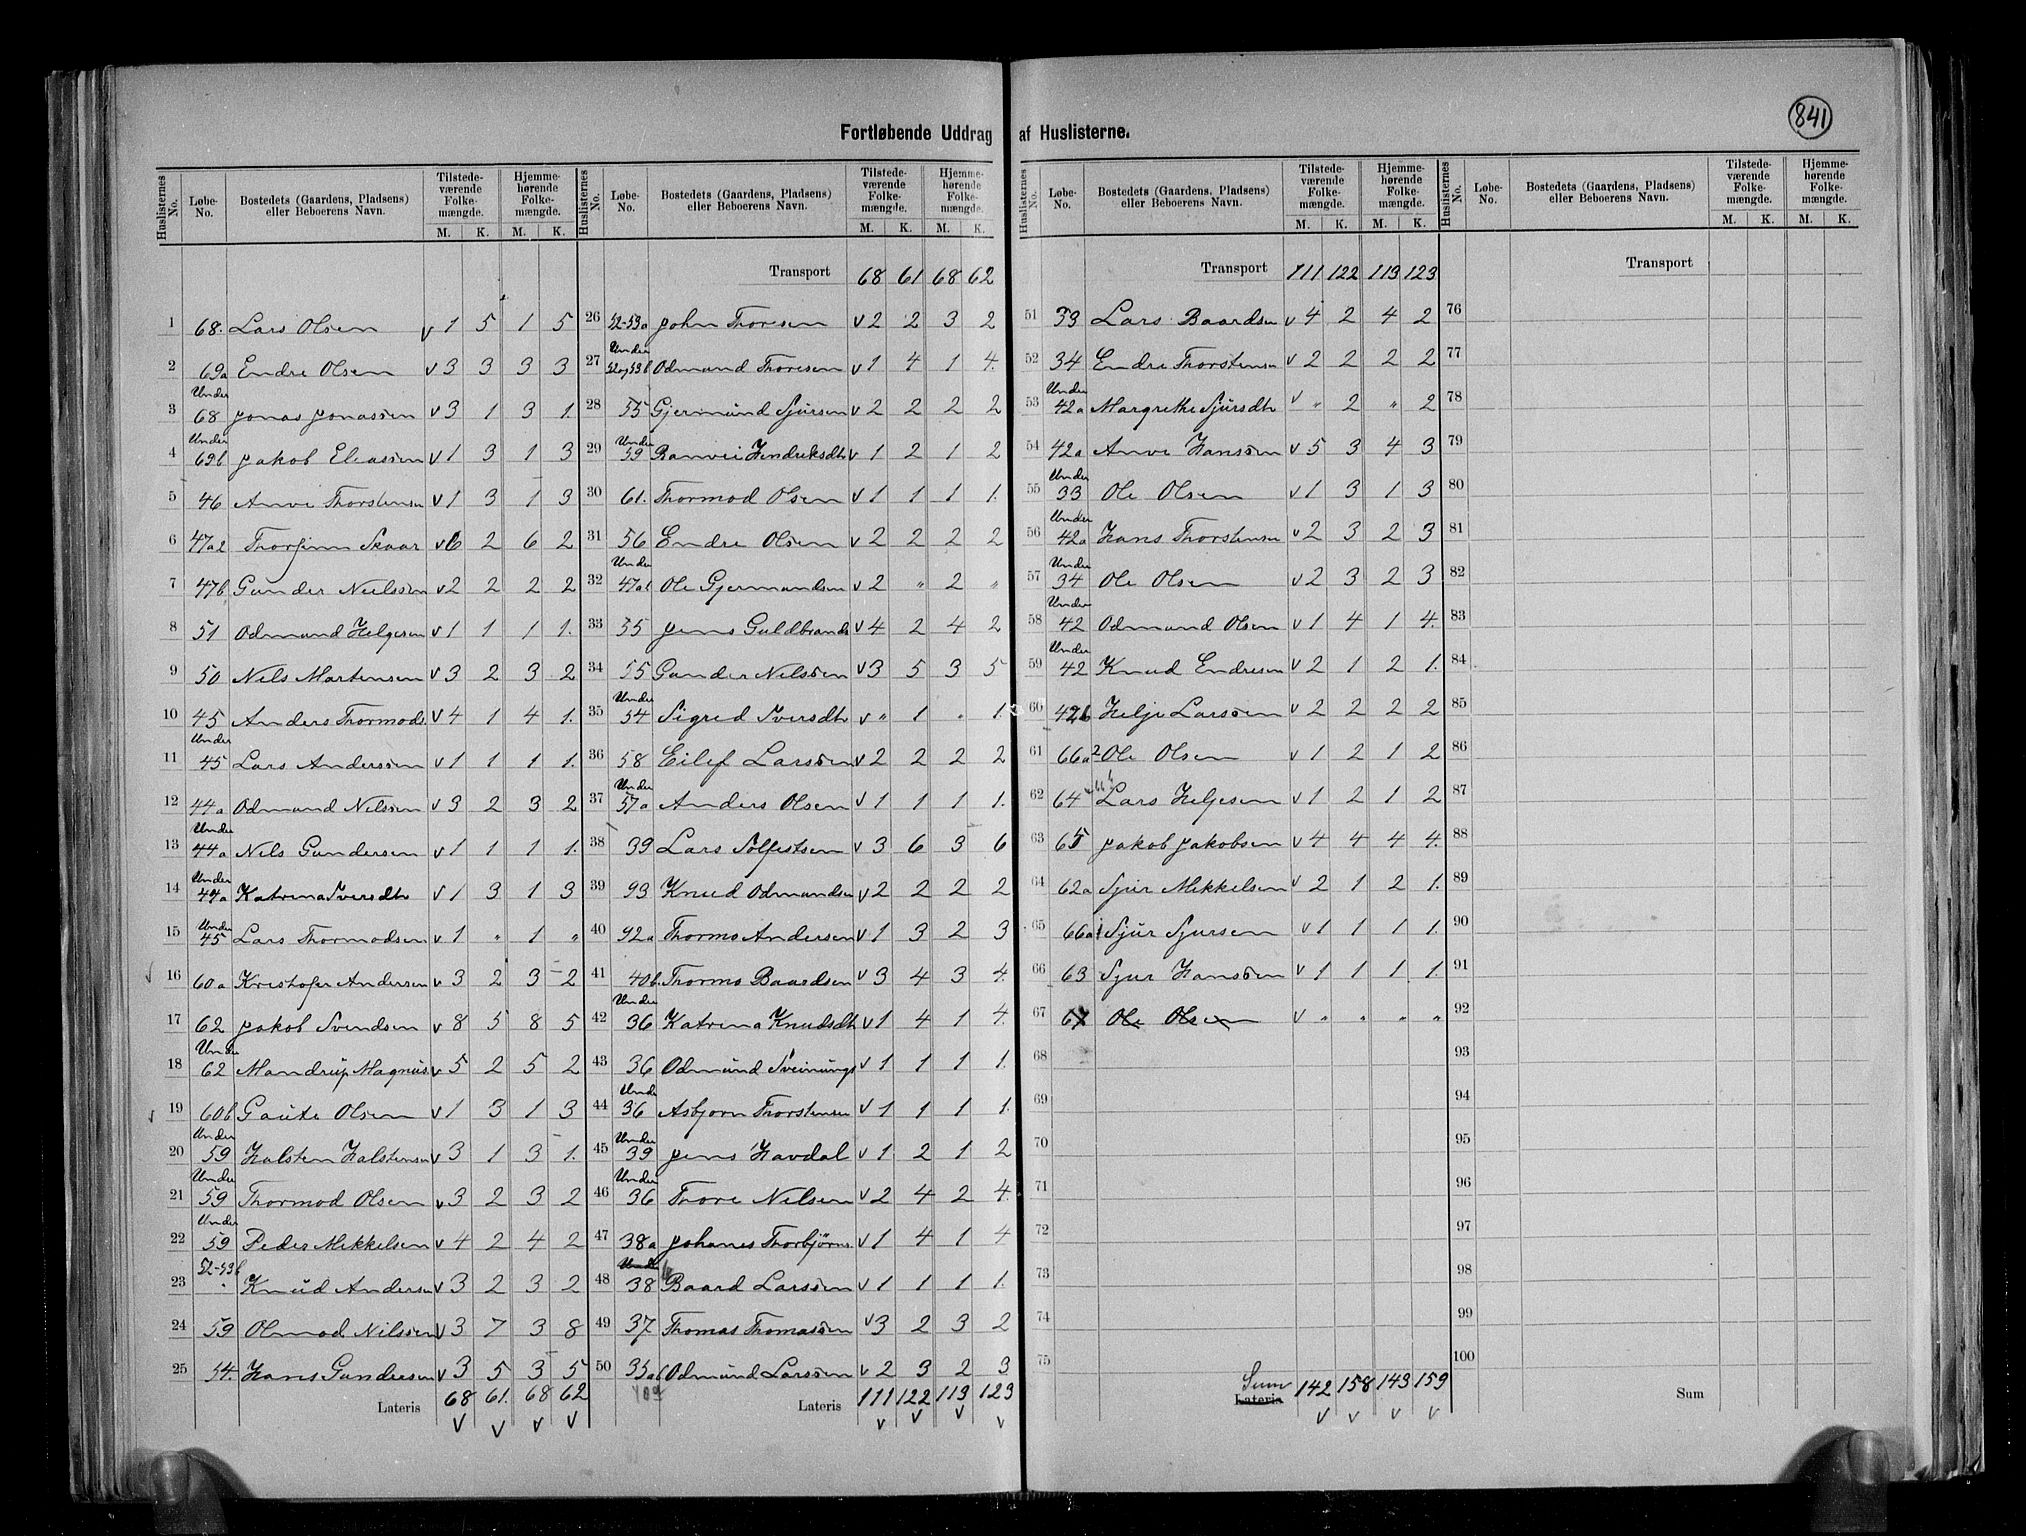 841
Fortløbende Uddrag af Huslisterne.
Huslisternes No. Løbe-No. Bostedets (Gaardens, Pladsens) eller Beboerens Navn. Tilstedeværende Folkemængde. Hjemmehørende Folkemængde.
M. K. M. K.
1 68. Lars Olsen v 1 5 1 5
2 69a Endre Olsen v 3 3 3 3
3 Under 68 Jonas Jonassen v 3 1 3 1.
4 Under 69b Jakob Eliassen v 1 3 1 3
5 46 Anve Thorstensen v 1 3 1 3
6 47a2 Thorfinn Skaar v 6 2 6 2
7 47b Gunder Nielssen v 2 2 2 2
8 51 Odmund Helgesen v 1 1 1 1.
9 50 Nels Martensen v 3 2 3 2
10 45 Anders Thormods. v 4 1 4 1.
11 Under 45 Lars Anderssen v 1 1 1 1.
12 44a Odmund Nilssen v 3 2 3 2
13 Under 44a Nils Gundersen v 1 1 1 1.
14 Under 44a Katrina Iversdtr v 1 3 1 3
15 Under 45 Lars Thormodsen v 1 " 1 "
16 60a Kristofer Andersen v 3 2 3 2
17 62 Jakob Svendsen v 8 5 8 5
18 Under 62 Mandrup Magnus. v 5 2 5 2
19 60b Gaute Olsen v 1 3 1 3
20 Under 59 Halsten Halstensen v 3 1 3 1.
21 Under 59 Thormod Olsen v 3 2 3 2
22 Under 59 Peder Mikkelsen v 4 2 4 2
23 52-53b Knud Andersen v 3 2 3 2
24 59 Olmod Nilssen v 3 7 3 8
25 54. Hans Gundersen v 3 5 3 5
Lateris 68 61. 68 62
v v v v
Huslisternes No. Løbe-No. Bostedets (Gaardens, Pladsens) eller Beboerens Navn. Tilstedeværende Folkemængde. Hjemmehørende Folkemængde.
M. K. M. K.
Transport 68 61 68 62
26 52-53a John Thoresen v 2 2 3 2
27 Under 52og53b Odmund Thoresen v 1 4 1 4.
28 55 Gjermund Sjursen v 2 2 2 2
29 Under 59 Ranvei Hendriksdtr v 1 2 1 2
30 61. Thormod Olsen v 1 1 1 1.
31 56 Endre Olsen v 2 2 2 2
32 Under 47a1 Ole Gjermundsen v 2 " 2 "
33 55 Jens Guldbrands v 4 2 4 2
34 55 Gunder Nilssen v 3 5 3 5
35 Under 54 Sigred Iversdtr v " 1 " 1.
36 58 Eilef Larssen v 2 2 2 2
37 Under 57a Anders Olsen v 1 1 1 1.
38 39 Lars Solfestsen v 3 6 3 6
39 93 Knud Odmundsen v 2 2 2 2
40 92a Thormo Andersen v 1 3 2 3
41 40b. Thormo Baardsen v 3 4 3 4.
42 Under 36 Katrina Knudsdtr v 1 4 1 4.
43 36 Odmund Sveinungs v 1 1 1 1.
44 Under 36 Asbjorn Thorstensen v 1 1 1 1.
45 Under 39 Jens Havdal v 1 2 1 2
46 Under 36 Thore Nilsen v 2 4 2 4.
47 38a Johanes Thorbjørns. v 1 4 1 4
48 Under 38b Baard Larssen v 1 1 1 1.
49 37 Thomas Thomassen v 3 2 3 2
50 35ab Odmund Larssen v 2 3 2 3
Lateris 111 122 113 123
v v v v
Huslisternes No. Løbe-No. Bostedets (Gaardens, Pladsens) eller Beboerens Navn. Tilstedeværende Folkemængde. Hjemmehørende Folkemængde.
M. K. M. K.
Transport 111 122 113 123
51 33 Lars Baardsen v 4 2 4 2
52 34 Endre Thorstensen v 2 2 2 2
53 Under 42a Margrethe Sjursdtr v " 2 " 2
54 42a Anve Hanssen v 5 3 4 3
55 Under 33 Ole Olsen v 1 3 1 3
56 Under 42a Hans Thorstensen v 2 3 2 3
57 Under 34 Ole Olsen v 2 3 2 3
58 Under 42 Odmund Olsen v 1 4 1 4.
59 Under 42 Knud Endresen v 2 1 2 1.
60 42b Helje Larssen v 2 2 2 2
61 66a2 Ole Olsen v 1 2 1 2
62 64 Lars Heljesen v 1 2 1 2
63 65 Jakob Jakobsen v 4 4 4 4.
64 62a Sjur Mikkelsen v 2 1 2 1.
65 66a1 Sjur Sjursen v 1 1 1 1.
66 63 Sjur Hanssen v 1 1 1 1.
67 67 Ole Olsen v " " " "
68
69
70
71
72
73
74
75
Sum Lateris 142 158 143 159
v v v v
Huslisternes No. Løbe-No. Bostedets (Gaardens, Pladsens) eller Beboerens Navn. Tilstedeværende Folkemængde. Hjemmehørende Folkemængde.
M. K. M. K.
Transport
76
77
78
79
80
81
82
83
84
85
86
87
88
89
90
91
92
93
94
95
96
97
98
99
100
Sum